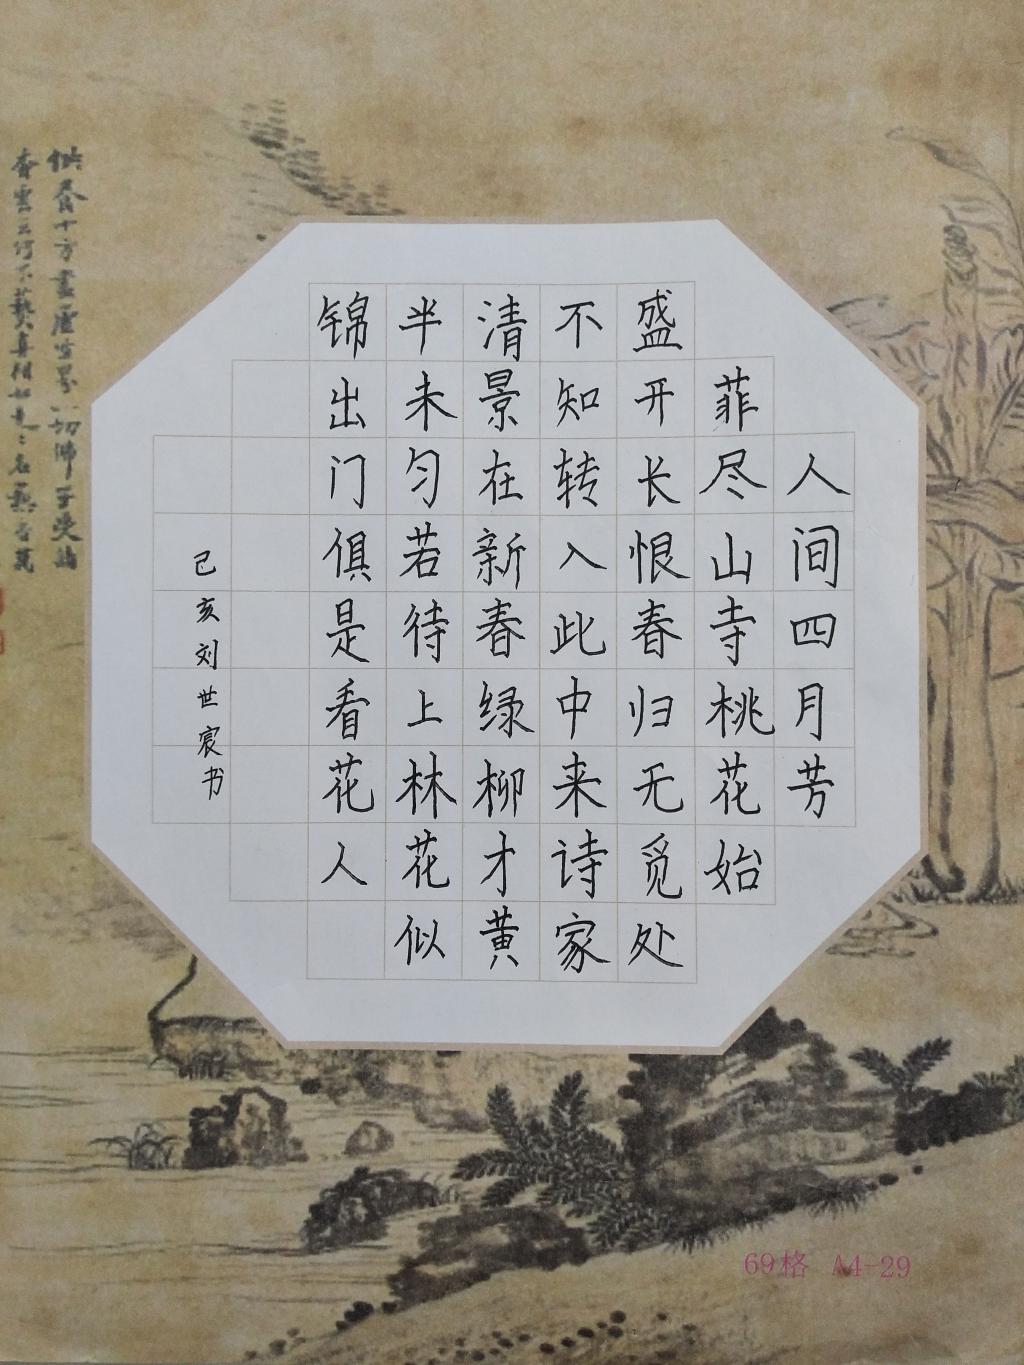 人间四月芳
菲尽山寺桃花始
盛开长恨春归无觅处
不知转入此中来诗家
清景在新春绿柳才黄
半未匀若待上林花似
锦出门俱是看花人
己亥刘世宸书
69格 A4-29